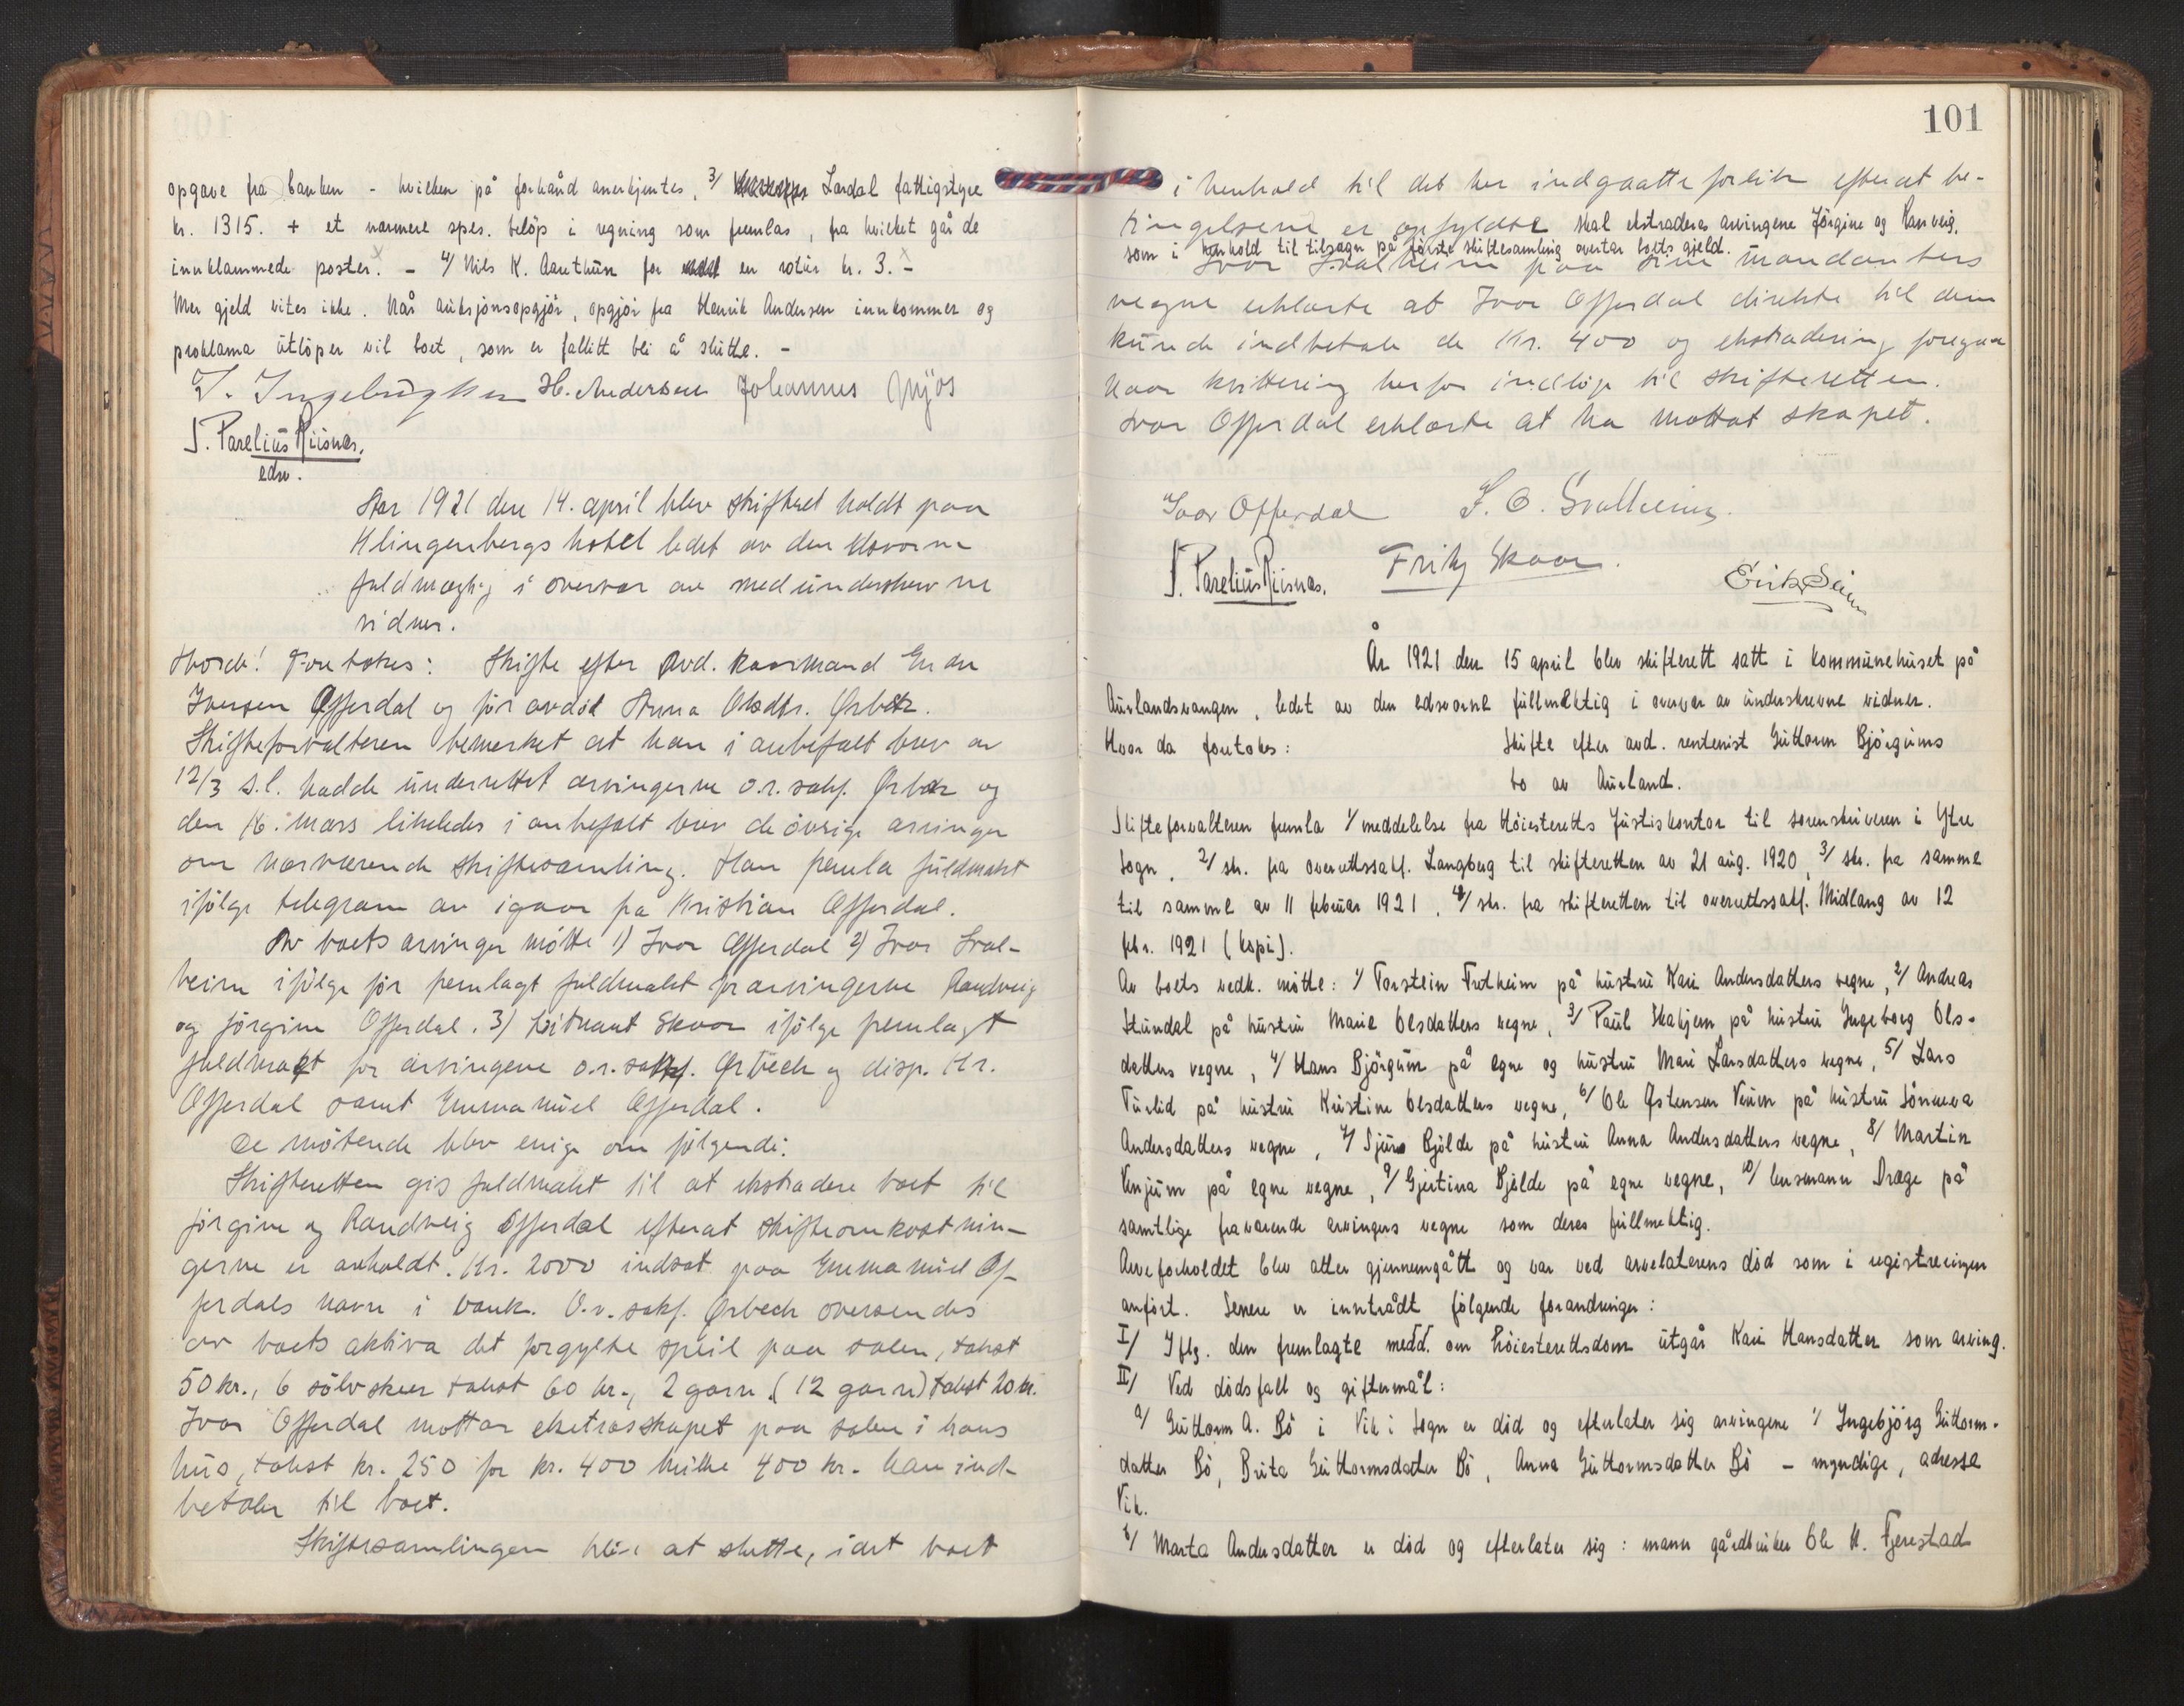 opgave fra banken - hvilken på forhånd anerkjentes, 3/ Lardal fattigstyre
kr. 1315. + et nærmere spes. beløp i regning som fremlas, fra hvilket går de
innklammede poster. - 4/ Nils K. Aarethun for en rotur kr. 3. -
Mer gjeld vites ikke. Når auksjonsopgjör, opgjör fra Henrik Andersen innkommer og
proklama utlöper vil boet, som er fallitt bli å slutte. -
H. Andersen Johannes
J. Parelius Riisnæs.
edsv.
Aar 1921 den 14. april blev skifteret holdt paa
Klingenbergs hotel ledet av den edsvorne
fuldmægtig i overvær av medunderskrevne
vidner.
Hvorda! Foretokes: Skifte efter avd. kaarmand Endre
Iversen Offerdal og før avdöd Anna Olsdtr. Ørbech.
Skifteforvalteren bemerket at han i anbefalt brev av
12/3 s.l. hadde underrettet arvingerne o.r.sakf. Ørbech og
den 16. mars likeledes i anbefalt brev de övrige arvinger
om nærværende skiftesamling. Han fremla fuldmakt
ifölge telegram av igaar fra Kristian Offerdal.
Av boets arvinger mötte 1) Ivar Offerdal 2) Ivar Sval-
heim ifölge för fremlagt fuldmakt for arvingerne Randveig
og Jörgine Offerdal. 3) Löitnant Skaar ifölge fremlagt
fuldmagt for arvingerne o.r.sakf. Ørbech og disp. Kr.
Offerdal samt Emmanuel Offerdal.
De mötende blev enige om fölgende:
Skifteretten gis fuldmakt til at ekstradere boet til
Jörgine og Randveig Offerdal efterat skifteomkostnin-
gerne er avholdt. Kr. 2000 indsat paa Emmanuel Of-
ferdals navn i bank. O.r.sakf. Ørbech oversendes
av boets aktiva det forgylte speil paa salen, takst
50 kr., 6 sölvskeer takst 60 kr., 2 garn (12 garn) takst 20 kr.
Ivar Offerdal mottar skapet paa salen i hans
hus, takst kr. 250 for kr. 400 hvilke 400 kr. han ind-
betaler til boet.
Skiftesamlingen blir at slutte, idet boet
101
i henhold til det her indgaatte forlik efterat be-
tingelserne er opfyldte skal ekstraderes arvingene Jörgine og Ranveig,
som i henhold til tilsagn på förste skiftesamling overtar boets gjeld.
Ivar Svalheim paa sine mandanters
vegne erklærte at Ivar Offerdal direkte til dem
kunde indbetale de Kr. 400 og ekstradering foregaa
naar kvittering herfor indlöp til skifteretten.
Ivar Offerdal erklærte at ha mottat skapet.
Ivar Offerdal Svalheim.
J. Parelius Riisnæs. Fritz Skaar. Erik
År 1921 den 15 april blev skifterett satt i kommunehuset på
Aurlandsvangen, ledet av den edsvorne fullmektig i overvær av underskrevne vidner.
Hvor da foretokes: Skifte efter avd. rentenist Guttorm Björgums
bo av Aurland.
Skifteforvalteren fremla 1/ meddelelse fra Höiesteretts Justiskontor til sorenskriveren i Ytre
Sogn, 2/ skr. fra overrettssakf. Langberg til skifteretten av 21 aug. 1920, 3/ skr. fra samme
til samme av 11 februar 1921, 4/ skr. fra skifteretten til overrettssakf. Midlang av 12
febr. 1921 (kopi).
Av boets vedk. mötte: 1/ Torstein Fretheim på hustru Kari Andersdatters vegne, 2/ Andreas
Stundal på hustru Marie Olsdatters vegne, 3/ Paul Skahjem på hustru Ingeborg Ols-
datters vegne, 4/ Hans Björgum på egne og hustru Mari Larsdatters vegne, 5/ Lars
Turlid på hustru Kristine Olsdatters vegne, 6/ Ole Østensen Vinim på hustru Sönneva
Andersdatters vegne, 7/ Sjur Bjölde på hustru Anna Andersdatters vegne, 8/ Martin
Venjum på egne vegne, 9/ Gjertina Bjelde på egne vegne, 10/ lensmann Dræge på
samtlige fraværende arvingers vegne som deres fullmektig.
Arveforholdet blev atter gjennemgått og var ved arvelaterens död som i registreringen
anfört. Senere er inntrådt fölgende forandringer:
I/ Iflg. den fremlagte medd. om höiesterettsdom utgår Kari Hansdatter som arving.
II/ Ved dödsfall og giftermål:
a/ Guttorm A. Bö i Vik i Sogn er död og efterlater sig arvingene 1/ Ingebjörg Guttorm-
datter Bö, Brita Guttormsdatter Bö, Anna Guttormsdatter Bö - myndige, adresse
Vik.
b/ Marta Andersdatter er död og efterlater sig: mann gårdbruker Ole H. Fjerestad